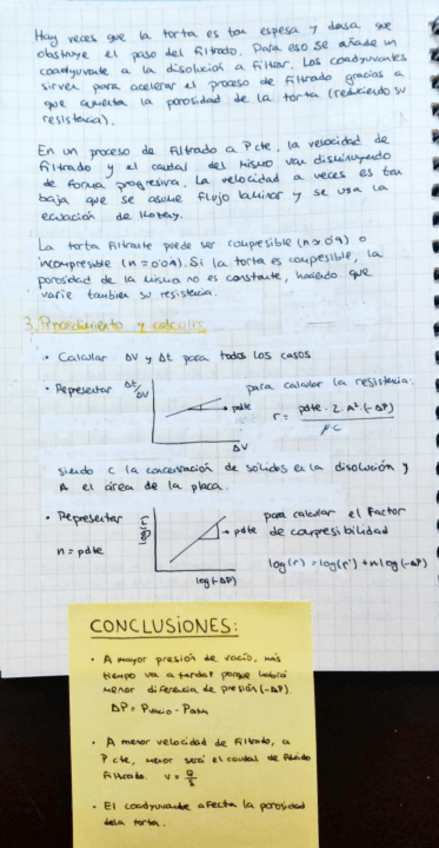 Hay veces que la torta es tan espesa y densa que
obstruye el paso del filtrado. Para eso se añade un
coadyuvante a la disolución a filtrar. Los coadyuvantes
sirven para acelerar el proceso de filtrado gracias a
que aumenta la porosidad de la torta (reduciendo su
resistencia).
En un proceso de filtrado a P cte, la velocidad de
filtrado y el caudal del mismo van disminuyendo
de forma progresiva. La velocidad a veces es tan
baja que se asume flujo laminar y se usa la
ecuación de Kozeny.
La torta filtrante puede ser compresible (n>0'9) o
incompresible (n=0'01). Si la torta es compresible, la
porosidad de la misma no es constante, haciendo que
varíe también su resistencia.
3. Procedimiento y cálculos
• Calcular ΔV y Δt para todos los casos
• Representar Δt/ΔV para calcular la resistencia:
pdte
r = pdte · 2 · A² · (-ΔP) / μ·c
ΔV
siendo c la concentración de sólidos en la disolución y
A el área de la placa.
• Representar log(r) para calcular el factor
n = pdte pdte de compresibilidad
log(r) = log(r') + n log(-ΔP)
log(-ΔP)
CONCLUSiONES:
• A mayor presión de vacío, más
tiempo va a tardar porque habrá
menor diferencia de presión (-ΔP).
ΔP = Pvacío - Patm
• A menor velocidad de filtrado, a
P cte, menor será el caudal de fluido
filtrado. v = Q/S
• El coadyuvante afecta la porosidad
de la torta.